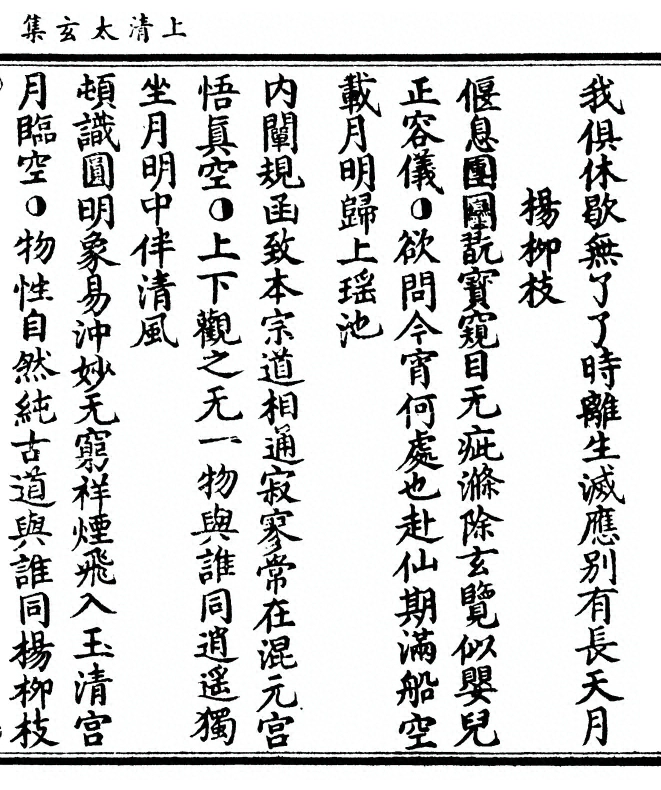 上清太玄集
我俱休歇無了了時離生滅應别有長天月
楊柳枝
偃息團圞翫寶窺目无疵滌除玄覽似嬰兒
正容儀◑欲問今宵何處也赴仙期滿船空
載月明歸上瑶池
内闡規函致本宗道相通寂寥常在混元宫
悟眞空◑上下觀之无一物與誰同逍遥獨
坐月明中伴清風
頓識圓明象易沖妙无窮祥煙飛入玉清宫
月臨空◑物性自然純古道與誰同楊柳枝